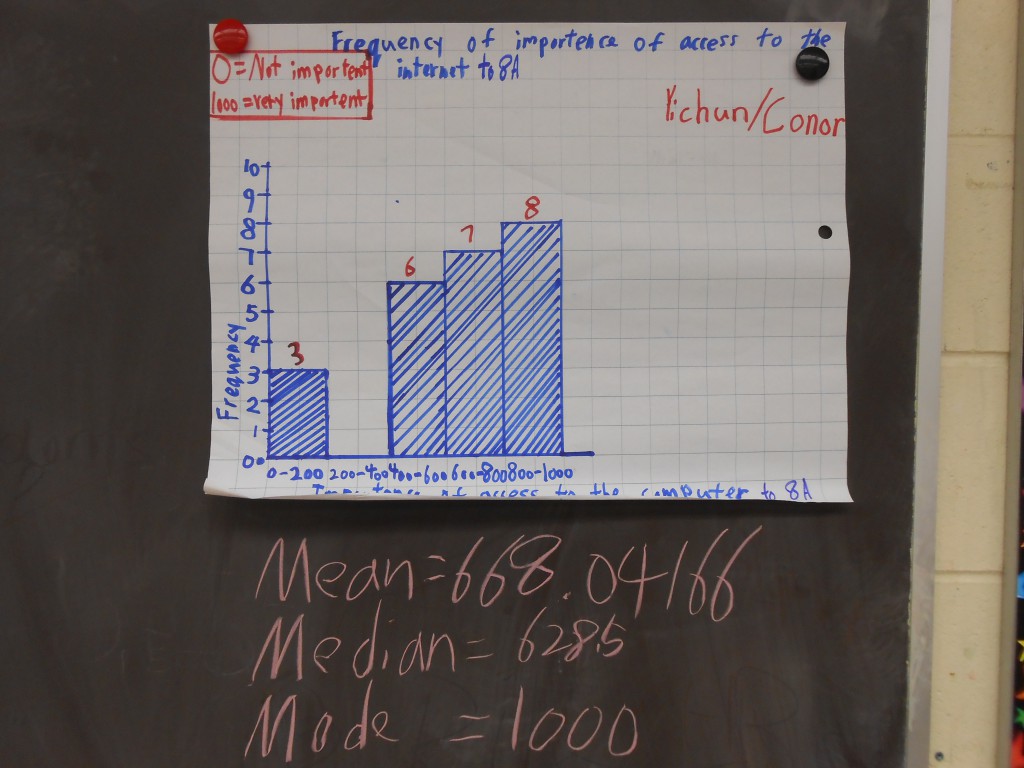 Frequency of importence of access to the
internet to 8A
0=Not importent
1000=very importent
Yichun/Conor
10
9
8
7
6
5
4
3
2
1
0
Frequency
8
7
6
3
0-200 200-400 400-600 600-800 800-1000
of access to the computer to 8A
Mean=668.04166
Median=628.5
Mode=1000